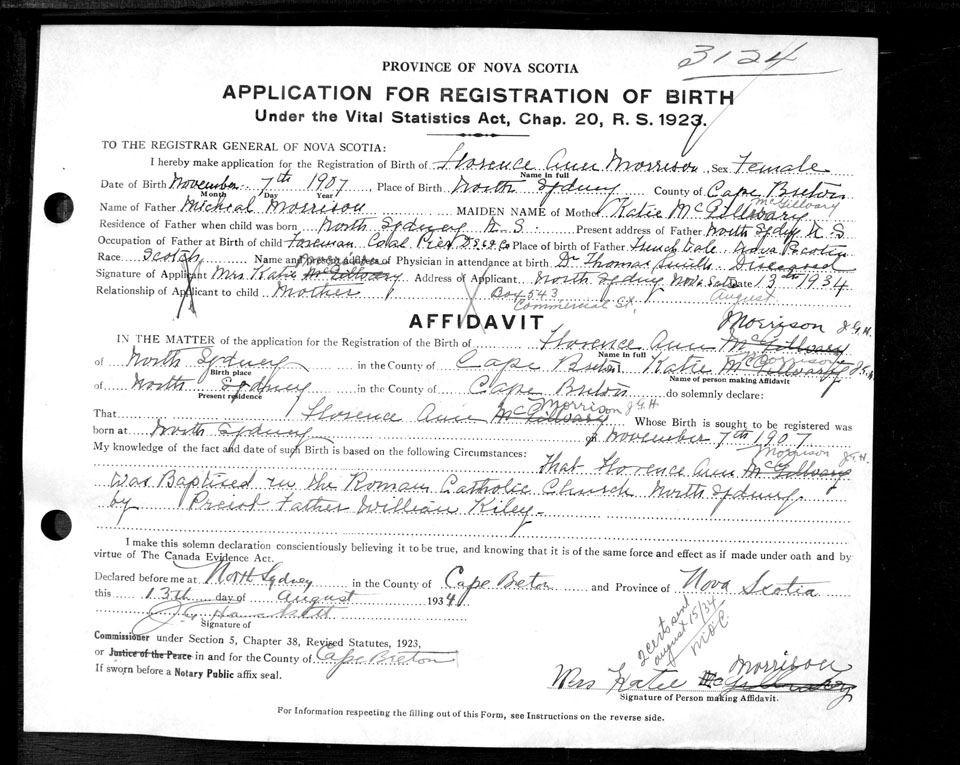 3124
PROVINCE OF NOVA SCOTIA
APPLICATION FOR REGISTRATION OF BIRTH
Under the Vital Statistics Act, Chap. 20, R. S. 1923.
TO THE REGISTRAR GENERAL OF NOVA SCOTIA:
I hereby make application for the Registration of Birth of Florence Ann Morrison, Sex Female
Name in full
Date of Birth November 7th 1907, Place of Birth North Sydney County of Cape Breton
Month Day Year
McGillvary
Name of Father Micheal Morrison MAIDEN NAME of Mother Katie McGillvary
Residence of Father when child was born North Sydney N S Present address of Father North Sydney N S
Occupation of Father at Birth of child Foreman Coal Pier Place of birth of Father French Vale Nova Scotia
Race Scotch Name and present address of Physician in attendance at birth Dr Thomas Smith Diseased
Signature of Applicant Mrs Katie McGillvary Address of Applicant North Sydney Nova Scotia Date 13th 1934
Morrison
Relationship of Applicant to child Mother Box 543 August
Commercial St,
AFFIDAVIT
Morrison J.G.H.
IN THE MATTER of the application for the Registration of the Birth of Florence Ann McGillvary
Name in full
of North Sydney in the County of Cape Breton I, Katie McGillvary
Birth place Name of person making Affidavit
of North Sydney in the County of Cape Breton do solemnly declare:
Present residence
Morrison J G H
That Florence Ann McGillvary Whose Birth is sought to be registered was
born at North Sydney on November 7th 1907
Morrison J.G.H.
My knowledge of the fact and date of such Birth is based on the following Circumstances: That Florence Ann McGillvary
was Baptised in the Roman Catholic Church North Sydney.
by Preist Father William Kiley
I make this solemn declaration conscientiously believing it to be true, and knowing that it is of the same force and effect as if made under oath and by
virtue of The Canada Evidence Act.
Declared before me at North Sydney in the County of Cape Breton and Province of Nova Scotia
this 13th day of August 1934
Signature of
2 certs sent
august 15/34
M O C
Commissioner under Section 5, Chapter 38, Revised Statutes, 1923,
or Justice of the Peace in and for the County of Cape Breton
If sworn before a Notary Public affix seal.
Morrison
Mrs Katie McGillvary
Signature of Person making Affidavit.
For Information respecting the filling out of this Form, see Instructions on the reverse side.